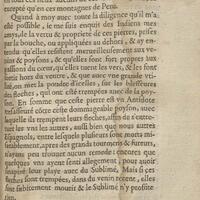 excepté qu'en ces montagnes de Peru.
Quand à moy auec toute la diligence qu'il m'a
esté possible, ie me suis enquit des Indiens mes
amys, de la vertu & proprieté de ces pierres, prises
par la bouche, ou appliquées au dehors, & ay en-
tendu qu'elles resistent merueilleusement aux ve-
nins & poysons, & qu'elles sont fort propres aux
passions du cœur, qu'elles tuent les vers, & les font
sortir hors du ventre, & que auec vne grande vti-
lité, on met la poudre d'icelles, sur les blessures
des fleches, qui ont esté trempées auec de la poy-
son. En somme que ceste pierre est vn Antidote
resistant à ceste dommageable poyson, auec
laquelle ils trempent leurs fleches, affin de s'entre-
tuer les vns les autres, aussi bien que nous autres
Espagnols, entre lesquels plusieurs sont morts mi-
serablement, apres des grands tourmens & fureurs,
n'ayans peu trouuer aucun remede: encores que
quelques vns ayent senti allegement pour auoir
saupiré leur playe auec du Sublimé, Mais si ces
fleches sont trempées, dans du venin recent, elles
font subitement mourir & le Sublimé n'y profite
rien.